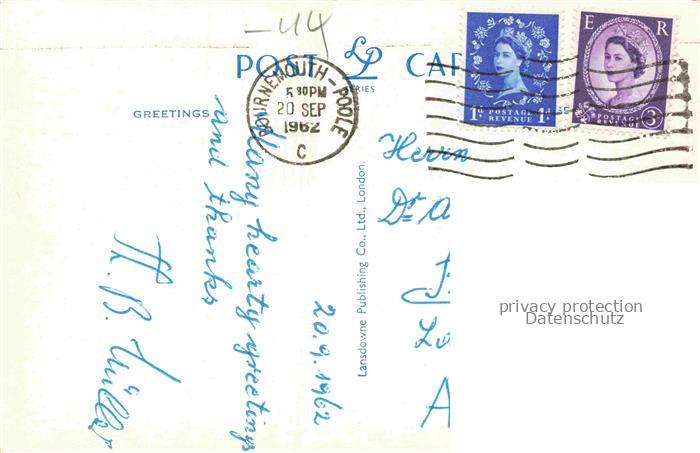 -44
POST LP CAR
SERIES
GREETINGS
BOURNEMOUTH - POOLE
5 30PM
20 SEP
1962
C
1D POSTAGE REVENUE 1D
E R
POSTAGE REVENUE 3D
Many hearty greetings
and thanks
20.9.1962
Lansdowne Publishing Co., Ltd., London.
Herrn
Dr A
Lo
A
privacy protection
Datenschutz